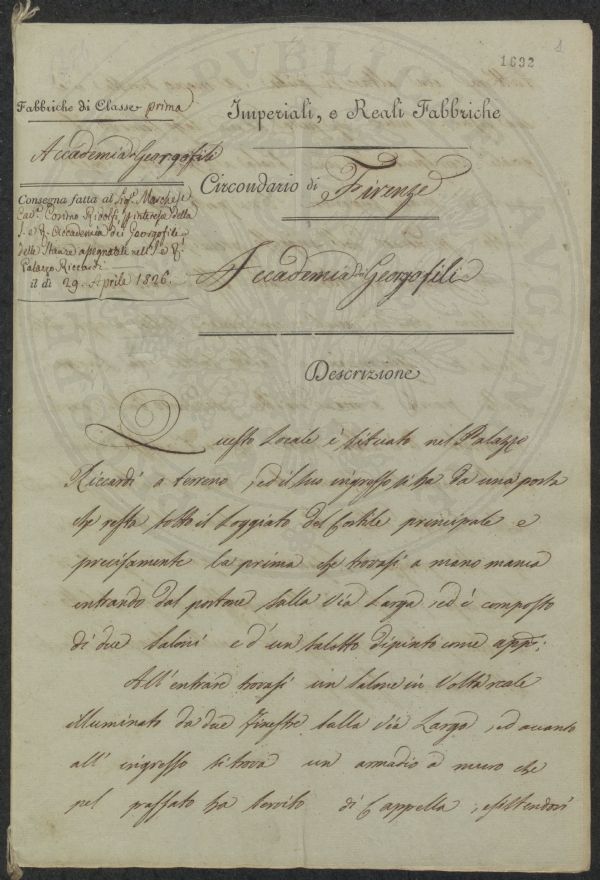 1
1632
Fabbriche di Classe prima
Accademia de Georgofili
Consegna fatta al Sig.r Marchese
Cav.r Cosimo Ridolfi, p interesse della
I. e R. Accademia dei Georgofili
delle Stanze assegnatele nell' I. e R.
Palazzo Riccardi
il dì 29. Aprile 1826.
Imperiali, e Reali Fabbriche
Circondario di Firenze
Accademia dei Georgofili
Descrizione
Questo Locale è situato nel Palazzo
Riccardi a terreno, ed il suo ingresso si ha da una porta
che resta sotto il Loggiato del Cortile principale e
precisamente la prima che trovasi a mano manca
entrando dal portone sulla Via Larga, ed è composto
di due Saloni e d'un Salotto dipinto come app.o;
All' entrare trovasi un Salone in Volta reale
illuminato da due finestre sulla Via Larga, ed accanto
all' ingresso si trova un armadio a muro che
pel passato ha servito di Cappella, esistendovi